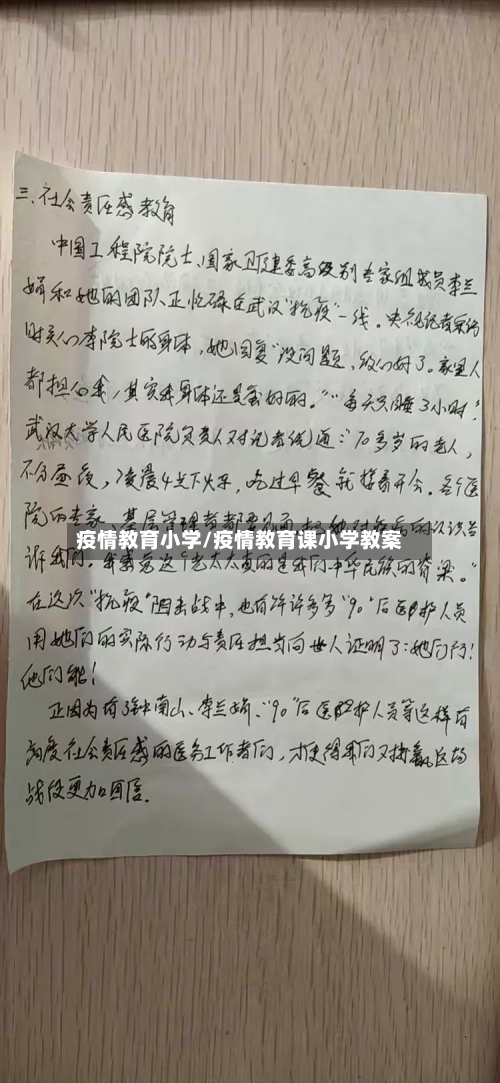 三、社会责任感教育
中国工程院院士、国家卫健委高级别专家组成员李兰
娟和她的团队正忙碌在武汉“抗疫”一线。央视记者采访
时关心李院士的身体，她回复“没问题，放心好了。家里人
都担心我，其实我身体还是蛮好的。”“每天只睡了小时”，
武汉大学人民医院负责人对记者统道：“70多岁的老人，
不分昼夜，凌晨4点下火车，吃过早餐就接着开会。各个医
院的专家、基层管理者都要见面
疫情教育小学/疫情教育课小学教案
诉我们。我要觉这个老太太真的是我们中华民族的脊梁。”
在这次“抗疫”阻击战中，也有许许多多“90”后医护人员
用她们的实际行动与责任担当向世人证明了：她们行！
他们能！
正因为有了钟南山、李兰娟、“90”后医院护人员等这样有
高度社会责任感的医务工作者们，才使得我们又打赢这场
战役更加自信。